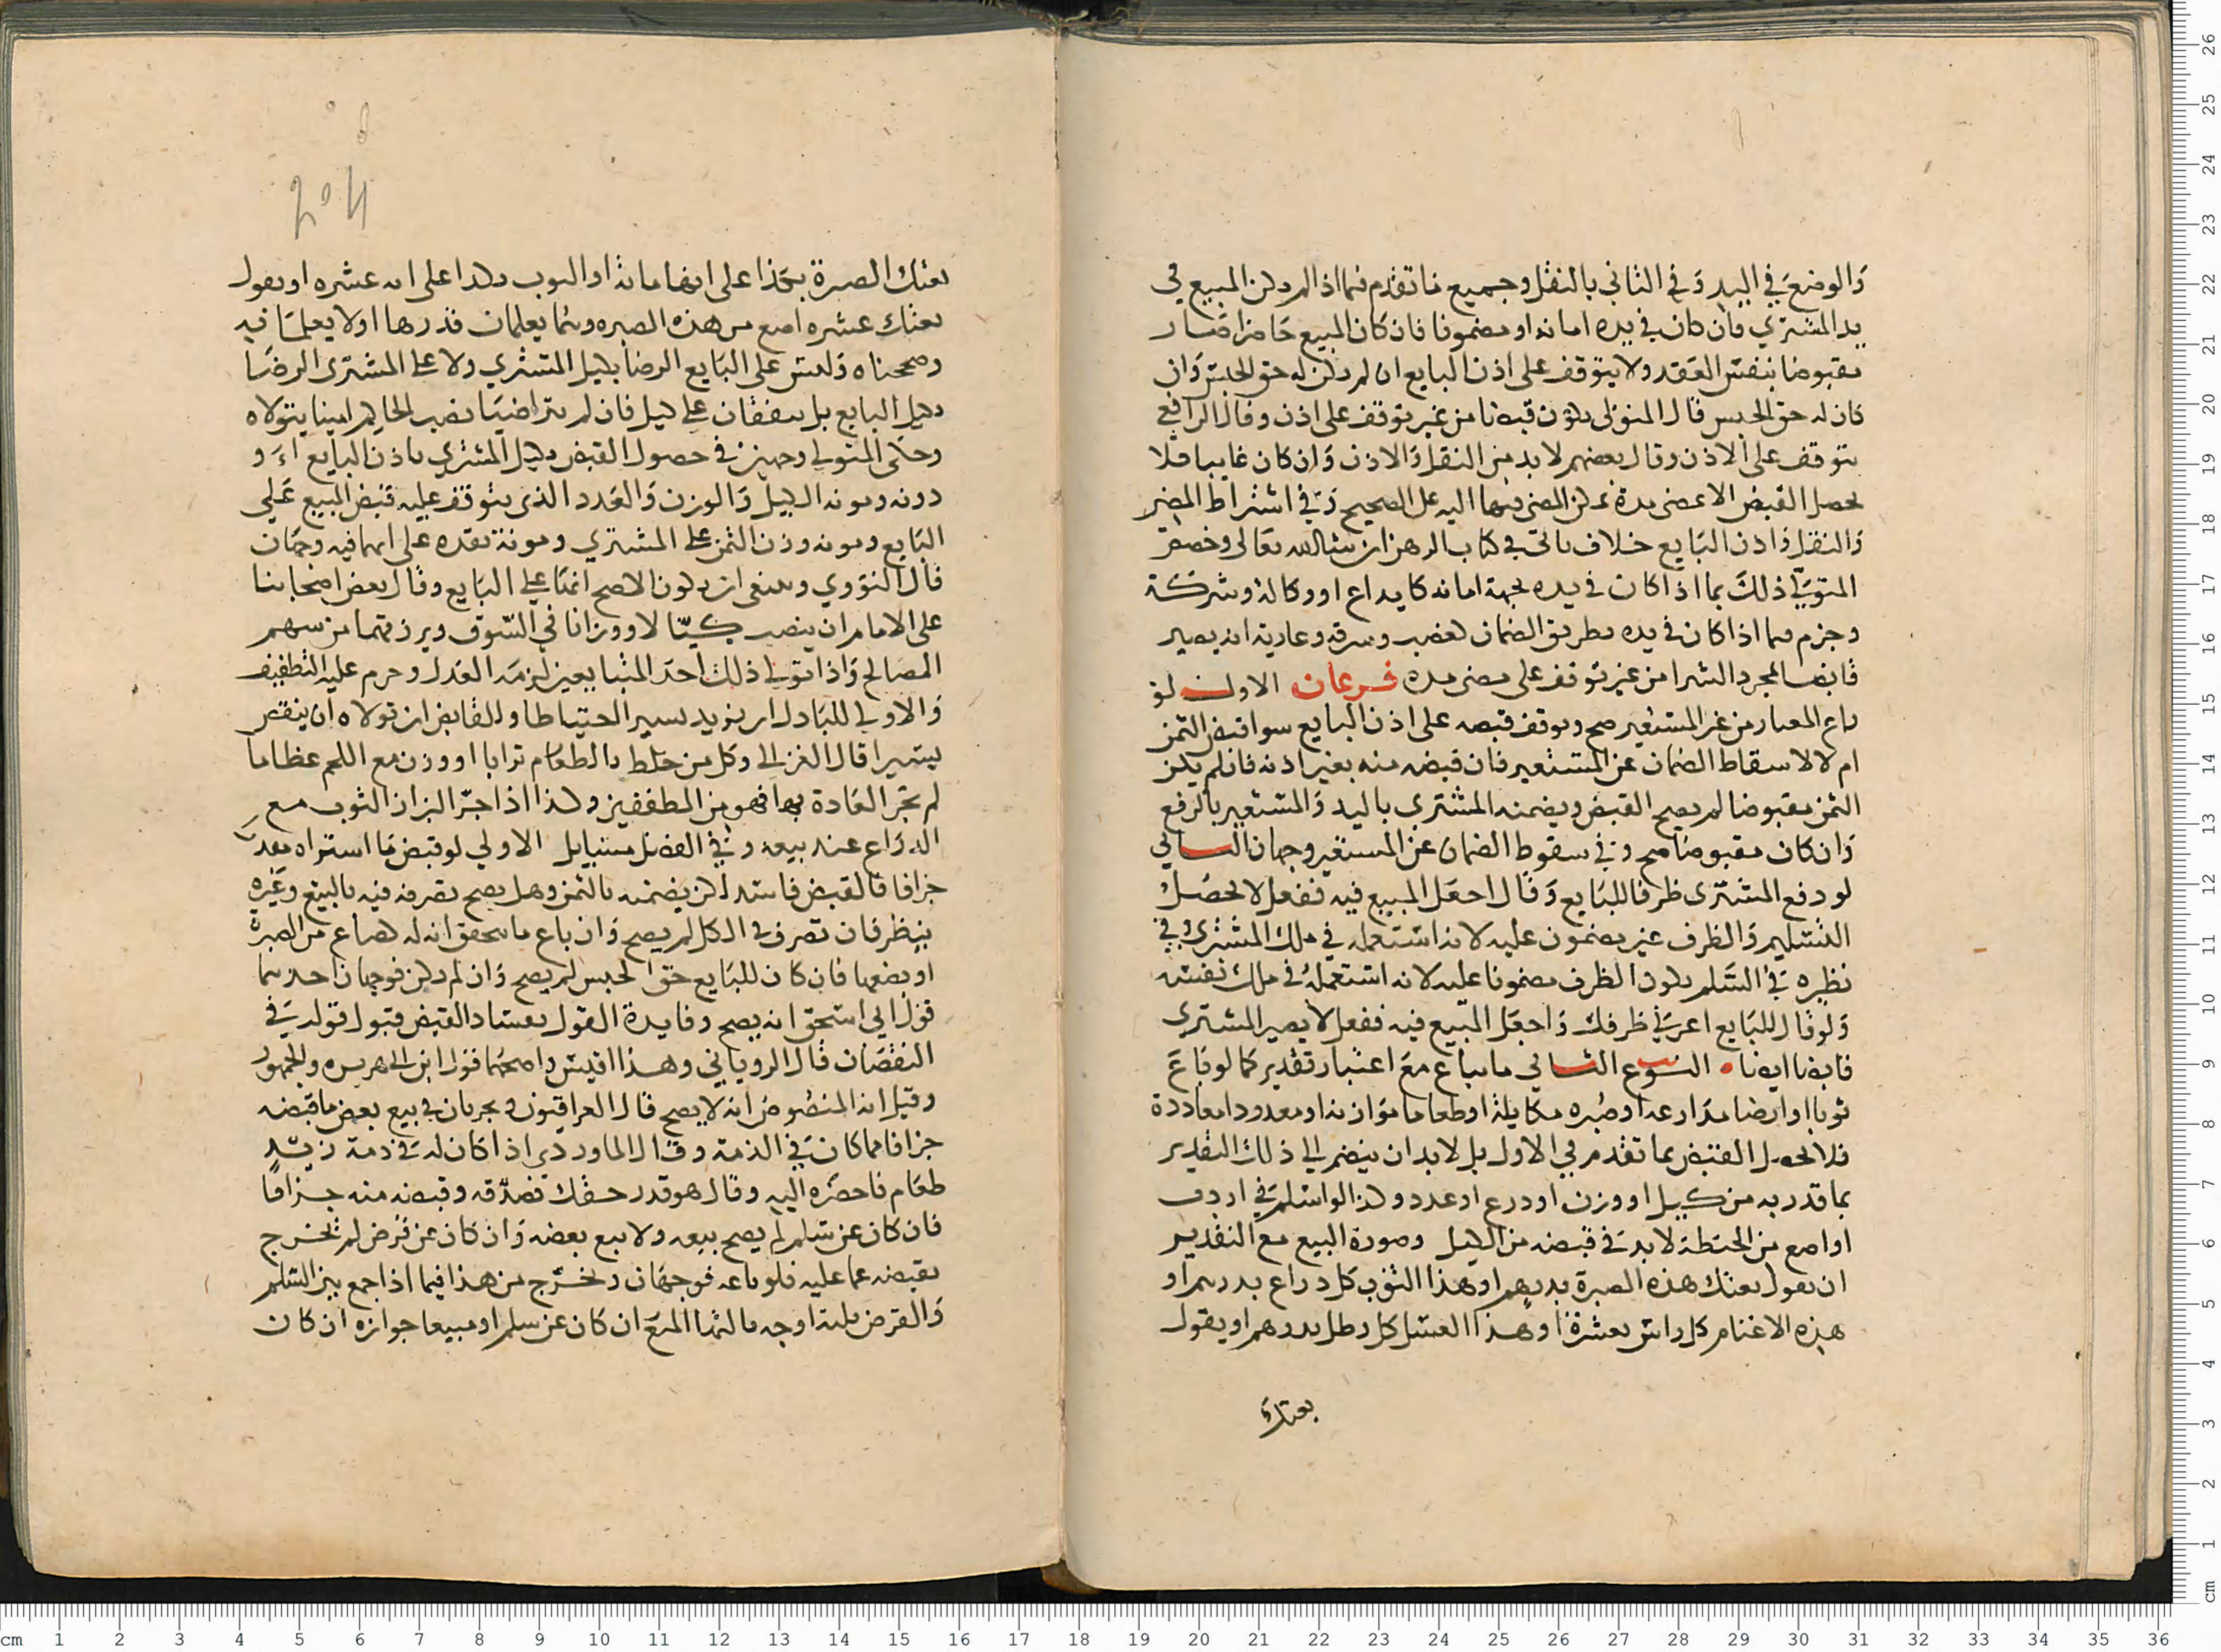 والوضع في اليد وفي الثاني بالنقل وجميع ما تقدم فيما اذا لم يكن المبيع في
يد المشتري فان كان في يده امانة او مضمونا فان كان المبيع حاضرا صار
مقبوضا بنفس العقد ولا يتوقف على اذن البايع ان لم يكن له حق الحبس وان
كان له حق الحبس قال المتولي يكون قبضا من غير توقف على اذن وقال الرافعي
يتوقف على الاذن وقال بعضهم لا بد من النقل والاذن وان كان غايبا فلا
يحصل القبض الا بمضى مدة يمكن المضى فيها اليه على الصحيح وفي اشتراط المضي
والنقل واذن البايع خلاف ياتي في كتاب الرهن ان شا الله تعالى وخصص
المتولي ذلك بما اذا كان في يده بجهة امانة كايداع او وكالة وشركة
وجزم فيما اذا كان في يده بطريق الضمان كغصب وسرقة وعارية انه يصير
قابضا بمجرد الشرا من غير توقف على مضى مدة فرعان الاول لو
باع المعار من غير المستعير صح وتوقف قبضه على اذن البايع سوا قبض الثمن
ام لا لاسقاط الضمان عن المستعير فان قبض منه بغير اذنه فان لم يكن
الثمن مقبوضا لم يصح القبض ويضمنه المشتري باليد والمستعير بالرفع
وان كان مقبوضا صح وفي سقوط الضمان عن المستعير وجهان الثاني
لو دفع المشترى ظرفا للبايع وقال اجعل المبيع فيه ففعل لا يحصل
التسليم والظرف غير مضمون عليه لانه استعمله في ملك المشتري وفي
نظيره في السلم يكون الظرف مضمونا عليه لانه استعمله في ملك نفسه
ولو قال للبايع اعرني ظرفك واجعل المبيع فيه ففعل لا يصير المشترى
قابضا ايضا النوع الثاني ما يباع مع اعتبار تقدير كما لو باع
ثوبا او ارضا مذارعة او صبره مكايلة او طعاما موازنة او معدودا معاددة
فلا يحصل القبض بما تقدم في الاول بل لا بد ان ينضم الى ذلك التقدير
بما قدر به من كيل او وزن او درع او عدد وكذا لو اسلم في اردب
او اصع من الحنطة لا بد في قبضه من الكيل وصورة البيع مع التقدير
ان يقول بعتك هذه الصبرة بدرهم او هذا الثوب كل دراع بدرهم او
هذه الاغنام كل راس بعشرة او هذا العسل كل رطل بدرهم او يقول
بعتك
بعتك الصبرة بكذا على انها ماية او الثوب بكذا على انه عشره او يقول
بعتك عشره اصع من هذه الصبره وهما يعلمان قدرها او لا يعلما فيه
وصححناه وليس على البايع الرضا بكيل المشتري ولا على المشترى الرضا
بكيل البايع بل يتفقان على كيل فان لم يتراضيا نصب الحاكم امينا يتولاه
وحكى المتولي وجهين في حصول القبض بكيل المشتري باذن البايع او
دونه ومونة الكيل والوزن والعدد الذي يتوقف عليه قبض المبيع على
البايع ومونة وزن الثمن على المشتري ومونة نقده على ايهما فيه وجهان
قال النووي وينبغي ان يكون الاصح انها على البايع وقال بعض اصحابنا
على الامام ان ينصب كيّالا ووزانا في السوق ويرزقهما من سهم
المصالح واذا تولى ذلك احد المتبايعين لزمه العدل وحرم عليه التطفيف
والاولى للباذل ان يزيد يسيرا احتياطا وللقابض ان تولاه ان ينقص
يسيرا قال الغزالي وكل من خلط بالطعام ترابا او وزن مع اللحم عظاما
لم تجر العادة بها فهو من المطففين وكذا اذا جرّ البزاز الثوب مع
الذراع عند بيعه وفي الفصل مسايل الاولى لو قبض ما اشتراه مقدرا
جزافا فالقبض فاسد لكن يضمنه بالثمن وهل يصح تصرفه فيه بالبيع وغيره
ينظر فان تصرف في الكل لم يصح وان باع ما يتحقق انه له كصاع من الصبرة
او بضعها فان كان للبايع حق الحبس لم يصح وان لم يكن فوجهان احدهما
قول ابي اسحق انه يصح وفايدة القول بفساد القبض قبول قوله في
النقصان قال الروياني وهذا اقيس واصحهما قول ابن ابي هريره والجمهور
وقيل انه المنصوص انه لا يصح قال العراقيون ويجريان في بيع بعض ما قبضه
جزافا مما كان في الذمة وقال الماوردي اذا كان له في ذمة زيد
طعام فاحضره اليه وقال هو قدر حقك فصدّقه وقبضه منه جزافا
فان كان عن سلم لم يصح بيعه ولا بيع بعضه وان كان عن قرض لم يخرج
بقبضه عما عليه فلو باعه فوجهان ويخرج من هذا فيما اذا جمع بين السلم
والقرض ثلثة اوجه ثالثها المنع ان كان عن سلم او مبيعا جوازه ان كان